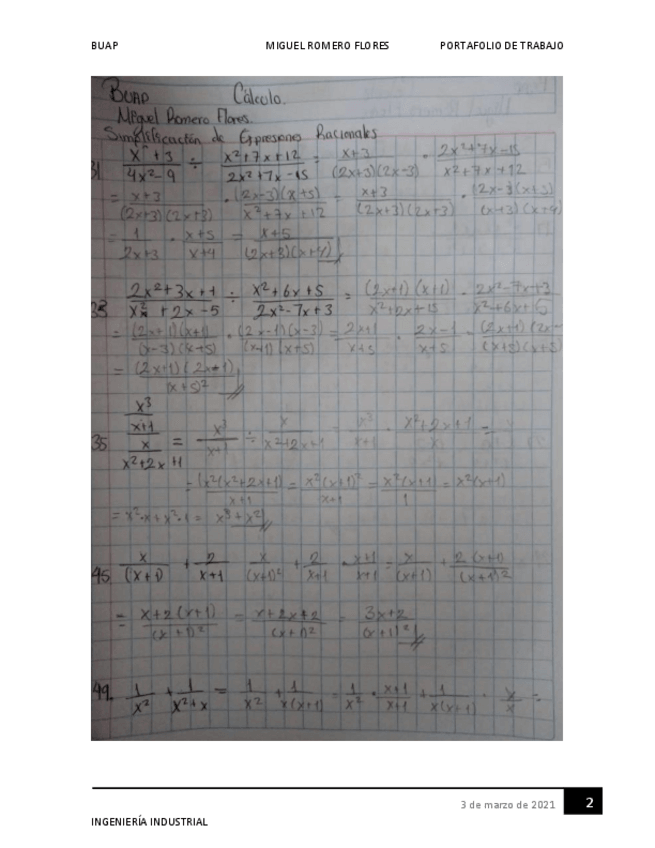 BUAP MIGUEL ROMERO FLORES PORTAFOLIO DE TRABAJO
BUAP Cálculo.
Miguel Romero Flores.
Simplificación de Expresiones Racionales
31. (x + 3)/(4x² - 9) ÷ (x² + 7x + 12)/(2x² + 7x - 15) = (x+3)/((2x+3)(2x-3)) · (2x² + 7x - 15)/(x² + 7x + 12)
= (x+3)/((2x+3)(2x+3)) · ((2x-3)(x+5))/(x² + 7x + 12) = (x+3)/((2x+3)(2x+3)) · ((2x-3)(x+5))/((x+3)(x+4))
= 1/(2x+3) · (x+5)/(x+4) = (x+5)/((2x+3)(x+4))
33 (2x² + 3x + 1)/(x² + 2x - 5) ÷ (x² + 6x + 5)/(2x² - 7x + 3) = ((2x+1)(x+1))/(x² + 2x + 15) · (2x² - 7x + 3)/(x² + 6x + 5)
= ((2x+1)(x+1))/((x-3)(x+5)) · ((2x-1)(x-3))/((x+1)(x+5)) = (2x+1)/(x+5) · (2x-1)/(x+5) = ((2x+1)(2x-)/((x+5)(x+5)
= ((2x+1)(2x+1))/(x+5)²
35 (x³/(x+1))/(x/(x² + 2x + 1)) = x³/(x+1) ÷ x/(x²+2x+1) = x³/(x+1) · (x²+2x+1)/x =
= (x²(x²+2x+1))/(x+1) = (x²(x+1)²)/(x+1) = (x²(x+1))/1 = x²(x+1)
= x²·x + x²·1 = x³ + x²
45 x/(x+1) + 2/(x+1) x/(x+1)² + 2/(x+1) · (x+1)/(x+1) = x/(x+1) + (2(x+1))/(x+1)²
= (x+2(x+1))/(x+1)² = (x+2x+2)/(x+1)² = (3x+2)/(x+1)²
49. 1/x² + 1/(x²+x) = 1/x² + 1/(x(x+1)) = 1/x² · (x+1)/(x+1) + 1/(x(x+1)) · x/x =
3 de marzo de 2021 2
INGENIERÍA INDUSTRIAL